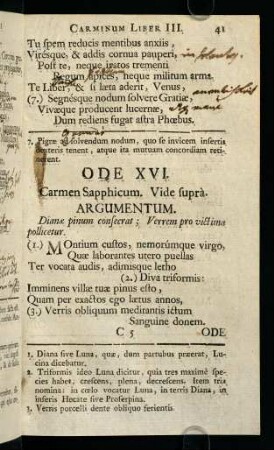 CARMINUM LIBER III. 41
Tu spem reducis mentibus anxiis,
Viresque, & addis cornua pauperi,
Post te, neque iratos trementi
Regum apices, neque militum arma.
Te Liber, & si læta aderit, Venus,
(7.) Segnesque nodum solvere Gratiæ,
Vivæque producent lucernæ,
Dum rediens fugat astra Phœbus.
7. Pigræ ad solvendum nodum, quo se invicem insertis
tenent, atque ita mutuam concordiam reti-
nerent.
ODE XVI.
Carmen Sapphicum. Vide suprà.
ARGUMENTUM.
Dianæ pinum consecrat; Verrem pro victima
pollicetur.
(1.) Montium custos, nemorúmque virgo,
Quæ laborantes utero puellas
Ter vocata audis, adimisque letho
(2.) Diva triformis:
Imminens villæ tuæ pinus esto,
Quam per exactos ego lætus annos,
(3.) Verris obliquum meditantis ictum
Sanguine donem.
C 5 ODE
1. Diana sive Luna, quæ, dum partubus præerat, Lu-
cina dicebatur.
2. Triformis ideo Luna dicitur, quia tres maximè spe-
cies habet, crescens, plena, decrescens. Item tria
nomina: in cœlo vocatur Luna, in terris Diana, in
inferis Hecate sive Proserpina.
3. Verris porcelli dente obliquo ferientis.